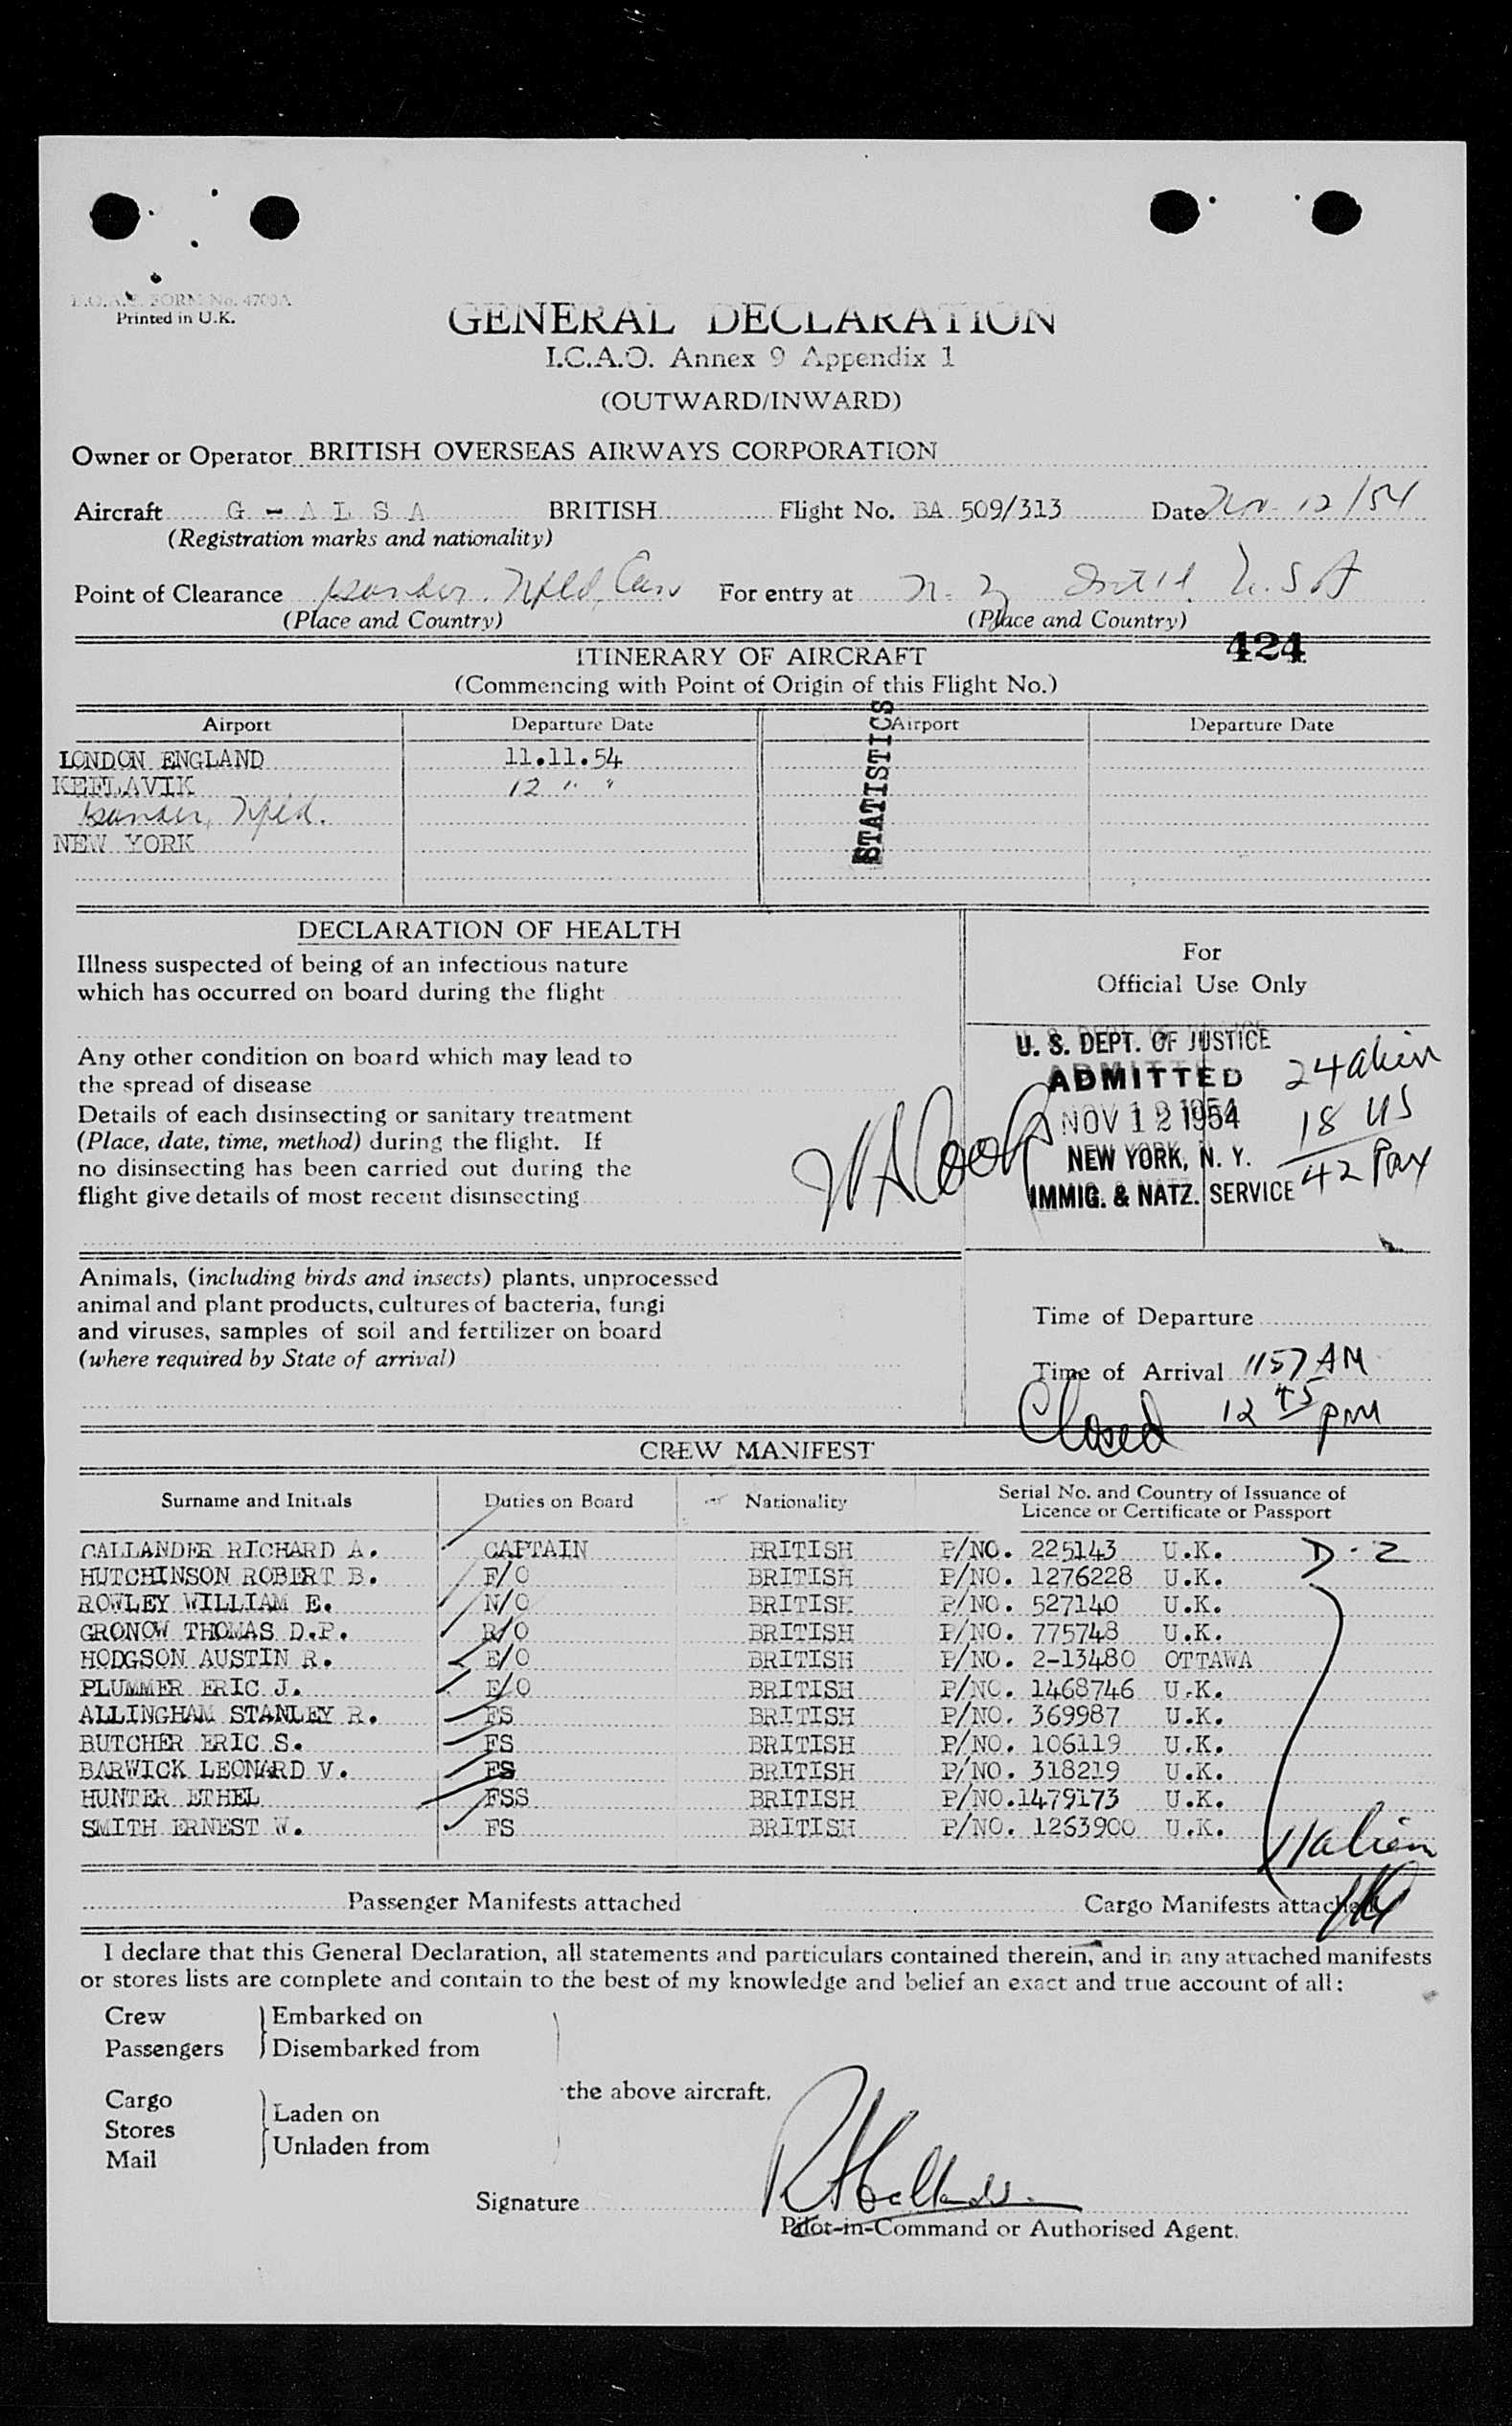 B.O.A.C. FORM No. 4700A
Printed in U.K.
GENERAL DECLARATION
I.C.A.O. Annex 9 Appendix 1
(OUTWARD/INWARD)
Owner or Operator BRITISH OVERSEAS AIRWAYS CORPORATION
Aircraft G - A L S A BRITISH Flight No. BA 509/313 Date Nov 12/54
(Registration marks and nationality)
Point of Clearance Gander, Nfld, Can For entry at N.Y. U.S.A
(Place and Country) (Place and Country)
424
ITINERARY OF AIRCRAFT
(Commencing with Point of Origin of this Flight No.)
Airport Departure Date Airport Departure Date
STATISTICS
LONDON ENGLAND 11.11.54
KEFLAVIK 12 " "
Gander, Nfld.
NEW YORK
DECLARATION OF HEALTH
Illness suspected of being of an infectious nature
which has occurred on board during the flight
Any other condition on board which may lead to
the spread of disease
Details of each disinsecting or sanitary treatment
(Place, date, time, method) during the flight. If
no disinsecting has been carried out during the
flight give details of most recent disinsecting
For
Official Use Only
U. S. DEPT. OF JUSTICE
ADMITTED
NOV 12 1954
NEW YORK, N. Y.
IMMIG. & NATZ. SERVICE
24 alien
18 US
42 Pax
Animals, (including birds and insects) plants, unprocessed
animal and plant products, cultures of bacteria, fungi
and viruses, samples of soil and fertilizer on board
(where required by State of arrival)
Time of Departure
Time of Arrival 1157 AM
Closed 12 45 PM
CREW MANIFEST
Surname and Initials Duties on Board Nationality Serial No. and Country of Issuance of
Licence or Certificate or Passport
CALLANDER RICHARD A. CAPTAIN BRITISH P/NO. 225143 U.K. D-2
HUTCHINSON ROBERT B. F/O BRITISH P/NO. 1276228 U.K.
ROWLEY WILLIAM E. N/O BRITISH P/NO. 527140 U.K.
GRONOW THOMAS D.P. R/O BRITISH P/NO. 775748 U.K.
HODGSON AUSTIN R. E/O BRITISH P/NO. 2-13480 OTTAWA
PLUMMER ERIC J. E/O BRITISH P/NO. 1468746 U.K.
ALLINGHAM STANLEY R. FS BRITISH P/NO. 369987 U.K.
BUTCHER ERIC S. FS BRITISH P/NO. 106119 U.K.
BARWICK LEONARD V. FS BRITISH P/NO. 318219 U.K.
HUNTER ETHEL FSS BRITISH P/NO.1479173 U.K.
SMITH ERNEST W. FS BRITISH P/NO. 1263900 U.K.
11 alien
Passenger Manifests attached Cargo Manifests attached
I declare that this General Declaration, all statements and particulars contained therein, and in any attached manifests
or stores lists are complete and contain to the best of my knowledge and belief an exact and true account of all:
Crew Embarked on
Passengers Disembarked from
the above aircraft.
Cargo Laden on
Stores
Unladen from
Mail
Signature
Pilot-in-Command or Authorised Agent.